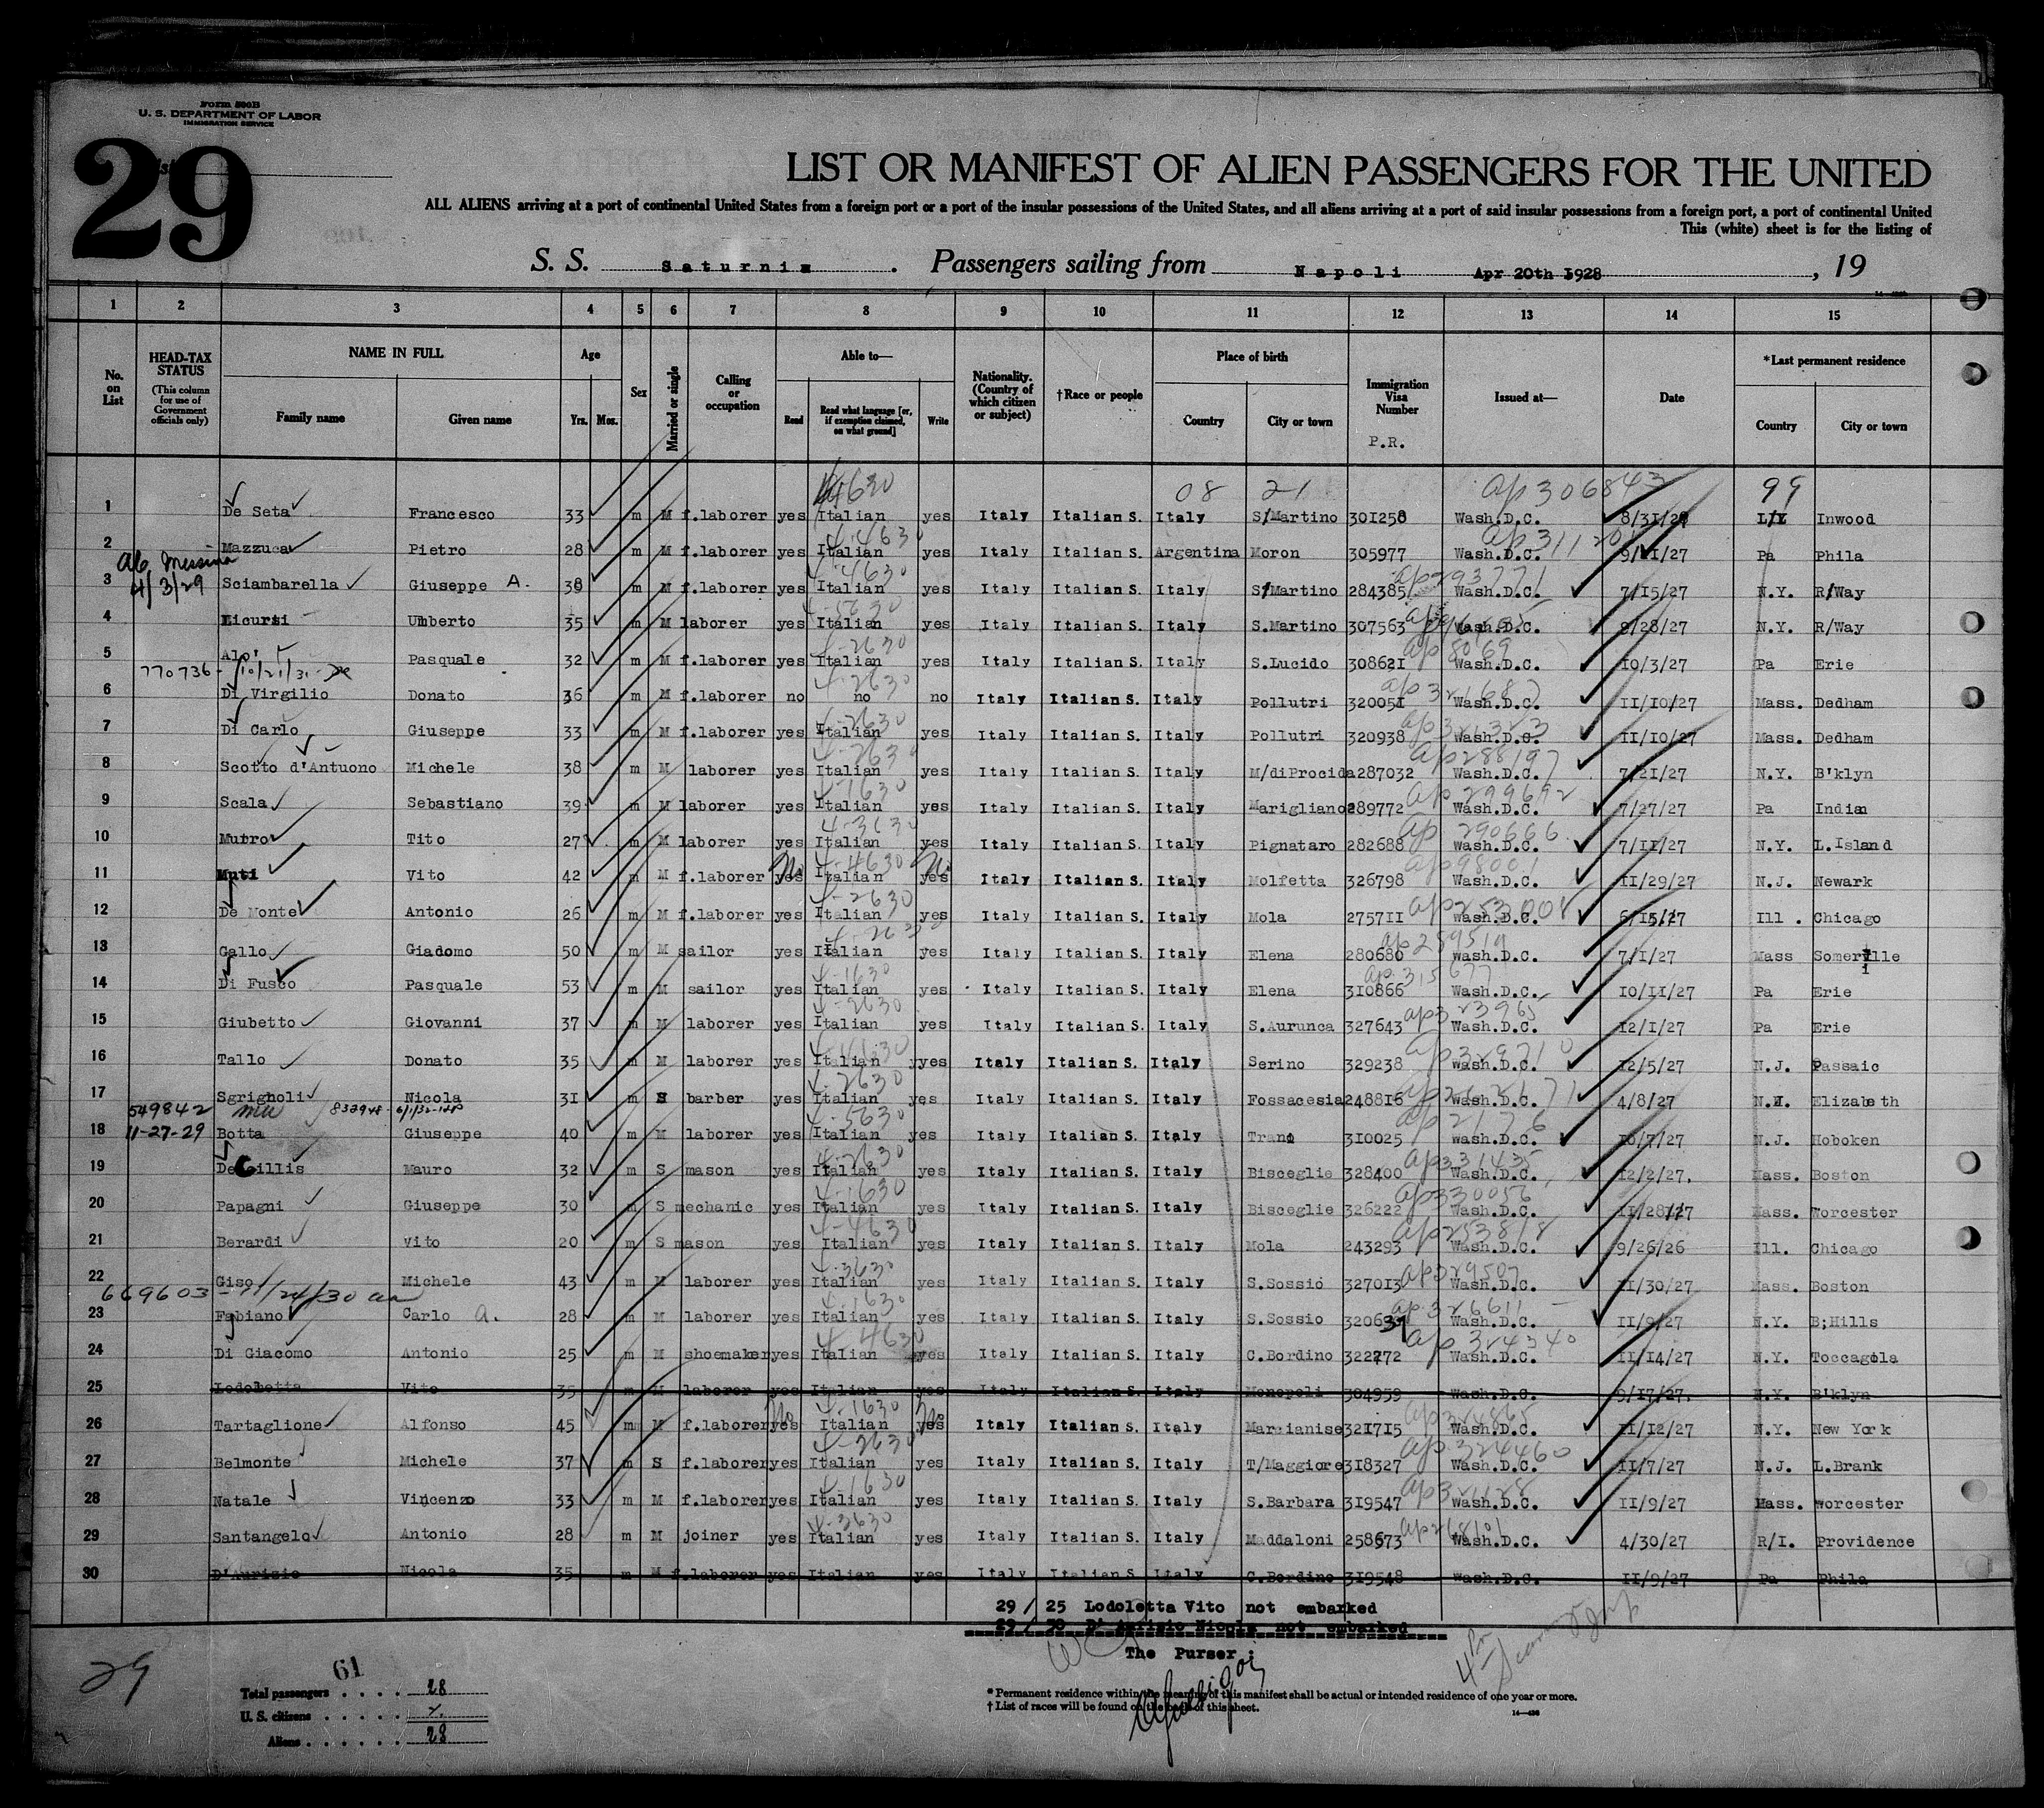 Form 500B
U. S. DEPARTMENT OF LABOR
IMMIGRATION SERVICE
29
LIST OR MANIFEST OF ALIEN PASSENGERS FOR THE UNITED
ALL ALIENS arriving at a port of continental United States from a foreign port or a port of the insular possessions of the United States, and all aliens arriving at a port of said insular possessions from a foreign port, a port of continental United
This (white) sheet is for the listing of
S. S. Saturnia . Passengers sailing from Napoli Apr 20th 1928 , 19
1 2 3 4 5 6 7 8 9 10 11 12 13 14 15
No. on List
HEAD-TAX STATUS (This column for use of Government officials only)
NAME IN FULL
Family name Given name
Age
Yrs. Mos.
Sex
Married or single
Calling or occupation
Able to—
Read Read what language [or, if exemption claimed, on what ground] Write
Nationality. (Country of which citizen or subject)
†Race or people
Place of birth
Country City or town
Immigration Visa Number
P.R.
Issued at—
Date
*Last permanent residence
Country City or town
4630 08 21 ap306843 99
1 De Seta Francesco 33 m M f.laborer yes Italian yes Italy Italian S. Italy S/Martino 301258 Wash.D.C. 8/31/28 Inwood
4-4630
2 Mazzuca Pietro 28 m M f.laborer yes Italian yes Italy Italian S. Argentina Moron 305977 Wash.D.C. Pa Phila
Messina 4-4630 ap293771
3 4/3/29 Sciambarella Giuseppe A. 38 m M f.laborer yes Italian yes Italy Italian S. Italy S/Martino 284385 Wash.D.C. 7/15/27 N.Y. R/Way
4-5630
4 Licursi Umberto 35 m M laborer yes Italian yes Italy Italian S. Italy S.Martino 307563 Wash.D.C. 9/28/27 N.Y. R/Way
4-2630 ap8069
5 Alo' Pasquale 32 m M f.laborer yes Italian yes Italy Italian S. Italy S.Lucido 308621 Wash.D.C. 10/3/27 Pa Erie
770736-10/21/31 4-2630
6 Di Virgilio Donato 36 m M f.laborer no no no Italy Italian S. Italy Pollutri 320051 Wash.D.C. 11/10/27 Mass. Dedham
4-2630 ap321323
7 Di Carlo Giuseppe 33 m M f.laborer yes Italian yes Italy Italian S. Italy Pollutri 320938 Wash.D.C. 11/10/27 Mass. Dedham
4-2630 ap288197
8 Scotto d'Antuono Michele 38 m M laborer yes Italian yes Italy Italian S. Italy M/diProcida 287032 Wash.D.C. 7/21/27 N.Y. B'klyn
4-1630 ap299692
9 Scala Sebastiano 39 m M laborer yes Italian yes Italy Italian S. Italy Marigliano 289772 Wash.D.C. 7/27/27 Pa Indian
4-3630 ap 290666
10 Mutro Tito 27 m M laborer yes Italian yes Italy Italian S. Italy Pignataro 282688 Wash.D.C. 7/11/27 N.Y. L.Island
No 4-4630 No ap98001
11 Muti Vito 42 m M f.laborer yes Italian yes Italy Italian S. Italy Molfetta 326798 Wash.D.C. 11/29/27 N.J. Newark
4-2630
12 De Monte Antonio 26 m M f.laborer yes Italian yes Italy Italian S. Italy Mola 275711 Wash.D.C. 6/15/27 Ill . Chicago
ap289519
13 Gallo Giadomo 50 m M sailor yes Italian yes Italy Italian S. Italy Elena 280680 Wash.D.C. 7/1/27 Mass Somerville
4-1630 ap315677
14 Di Fusco Pasquale 53 m M sailor yes Italian yes Italy Italian S. Italy Elena 310866 Wash.D.C. 10/11/27 Pa Erie
4-2630 ap323965
15 Giubetto Giovanni 37 m M laborer yes Italian yes Italy Italian S. Italy S.Aurunca 327643 Wash.D.C. 12/1/27 Pa Erie
ap329710
16 Tallo Donato 35 m M laborer yes Italian yyes Italy Italian S. Italy Serino 329238 Wash.D.C. 12/5/27 N.J. Passaic
4-2630
17 Sgrignoli Nicola 31 m S barber yes Italian yes Italy Italian S. Italy Fossacesia 248816 Wash.D.C. 4/8/27 Elizabeth
549842 4-5630
18 11-27-29 Botta Giuseppe 40 m M laborer yes Italian yes Italy Italian S. Italy Trani 310025 Wash.D.C. 10/7/27 N.J. Hoboken
4-2630 ap331435
19 De Gillis Mauro 32 m S mason yes Italian yes Italy Italian S. Italy Bisceglie 328400 Wash.D.C. 12/2/27. Mass. Boston
4-1630 ap330056
20 Papagni Giuseppe 30 m S mechanic yes Italian yes Italy Italian S. Italy Bisceglie 326222 Wash.D.C. 11/28/27 Mass. Worcester
4-4630 ap253818
21 Berardi Vito 20 m S mason yes Italian yes Italy Italian S. Italy Mola 243293 Wash.D.C. 9/26/26 Ill. Chicago
4-3630 ap329507
22 Giso Michele 43 m M laborer yes Italian yes Italy Italian S. Italy S.Sossio 327013 Wash.D.C. 11/30/27 Mass. Boston
669603 4-1630 ap326611
23 Fabiano Carlo A. 28 m M laborer yes Italian yes Italy Italian S. Italy S.Sossio Wash.D.C. 11/9/27 N.Y. B;Hills
4-4630 ap 324340
24 Di Giacomo Antonio 25 m M shoemaker yes Italian yes Italy Italian S. Italy C.Bordino 322272 Wash.D.C. 11/14/27 N.Y. Toccagola
25 Lodoletta Vito 35 m M laborer yes Italian yes Italy Italian S. Italy Monopoli 304959 Wash.D.C. 9/17/27. N.Y. B'klyn
No 4-1630 No
26 Tartaglione Alfonso 45 m M f.laborer yes Italian yes Italy Italian S. Italy Marcianise 321715 Wash.D.C. 11/12/27 N.Y. New York
4-2630 ap 324460
27 Belmonte Michele 37 m S f.laborer yes Italian yes Italy Italian S. Italy T/Maggiore 318327 Wash.D.C. 11/7/27 N.J. L.Brank
4-1630
28 Natale Vincenzo 33 m M f.laborer yes Italian yes Italy Italian S. Italy S.Barbara 319547 Wash.D.C. 11/9/27 Mass. Worcester
4-3630 ap268101
29 Santangelo Antonio 28 m M joiner yes Italian yes Italy Italian S. Italy Maddaloni 258673 Wash.D.C. 4/30/27 R/I. Providence
30 D'Aurisio Nicola 35 m M f.laborer yes Italian yes Italy Italian S. Italy C.Bordino 319548 Wash.D.C. 11/9/27 Pa Phila
29 / 25 Lodoletta Vito not embarked
29 / 30 D'Aurisio Nicola not embarked
The Purser:
29
61
Total passengers . . . . 28
U. S. citizens . . . . .
Aliens . . . . . . 28
* Permanent residence within the meaning of this manifest shall be actual or intended residence of one year or more.
† List of races will be found on the back of this sheet.